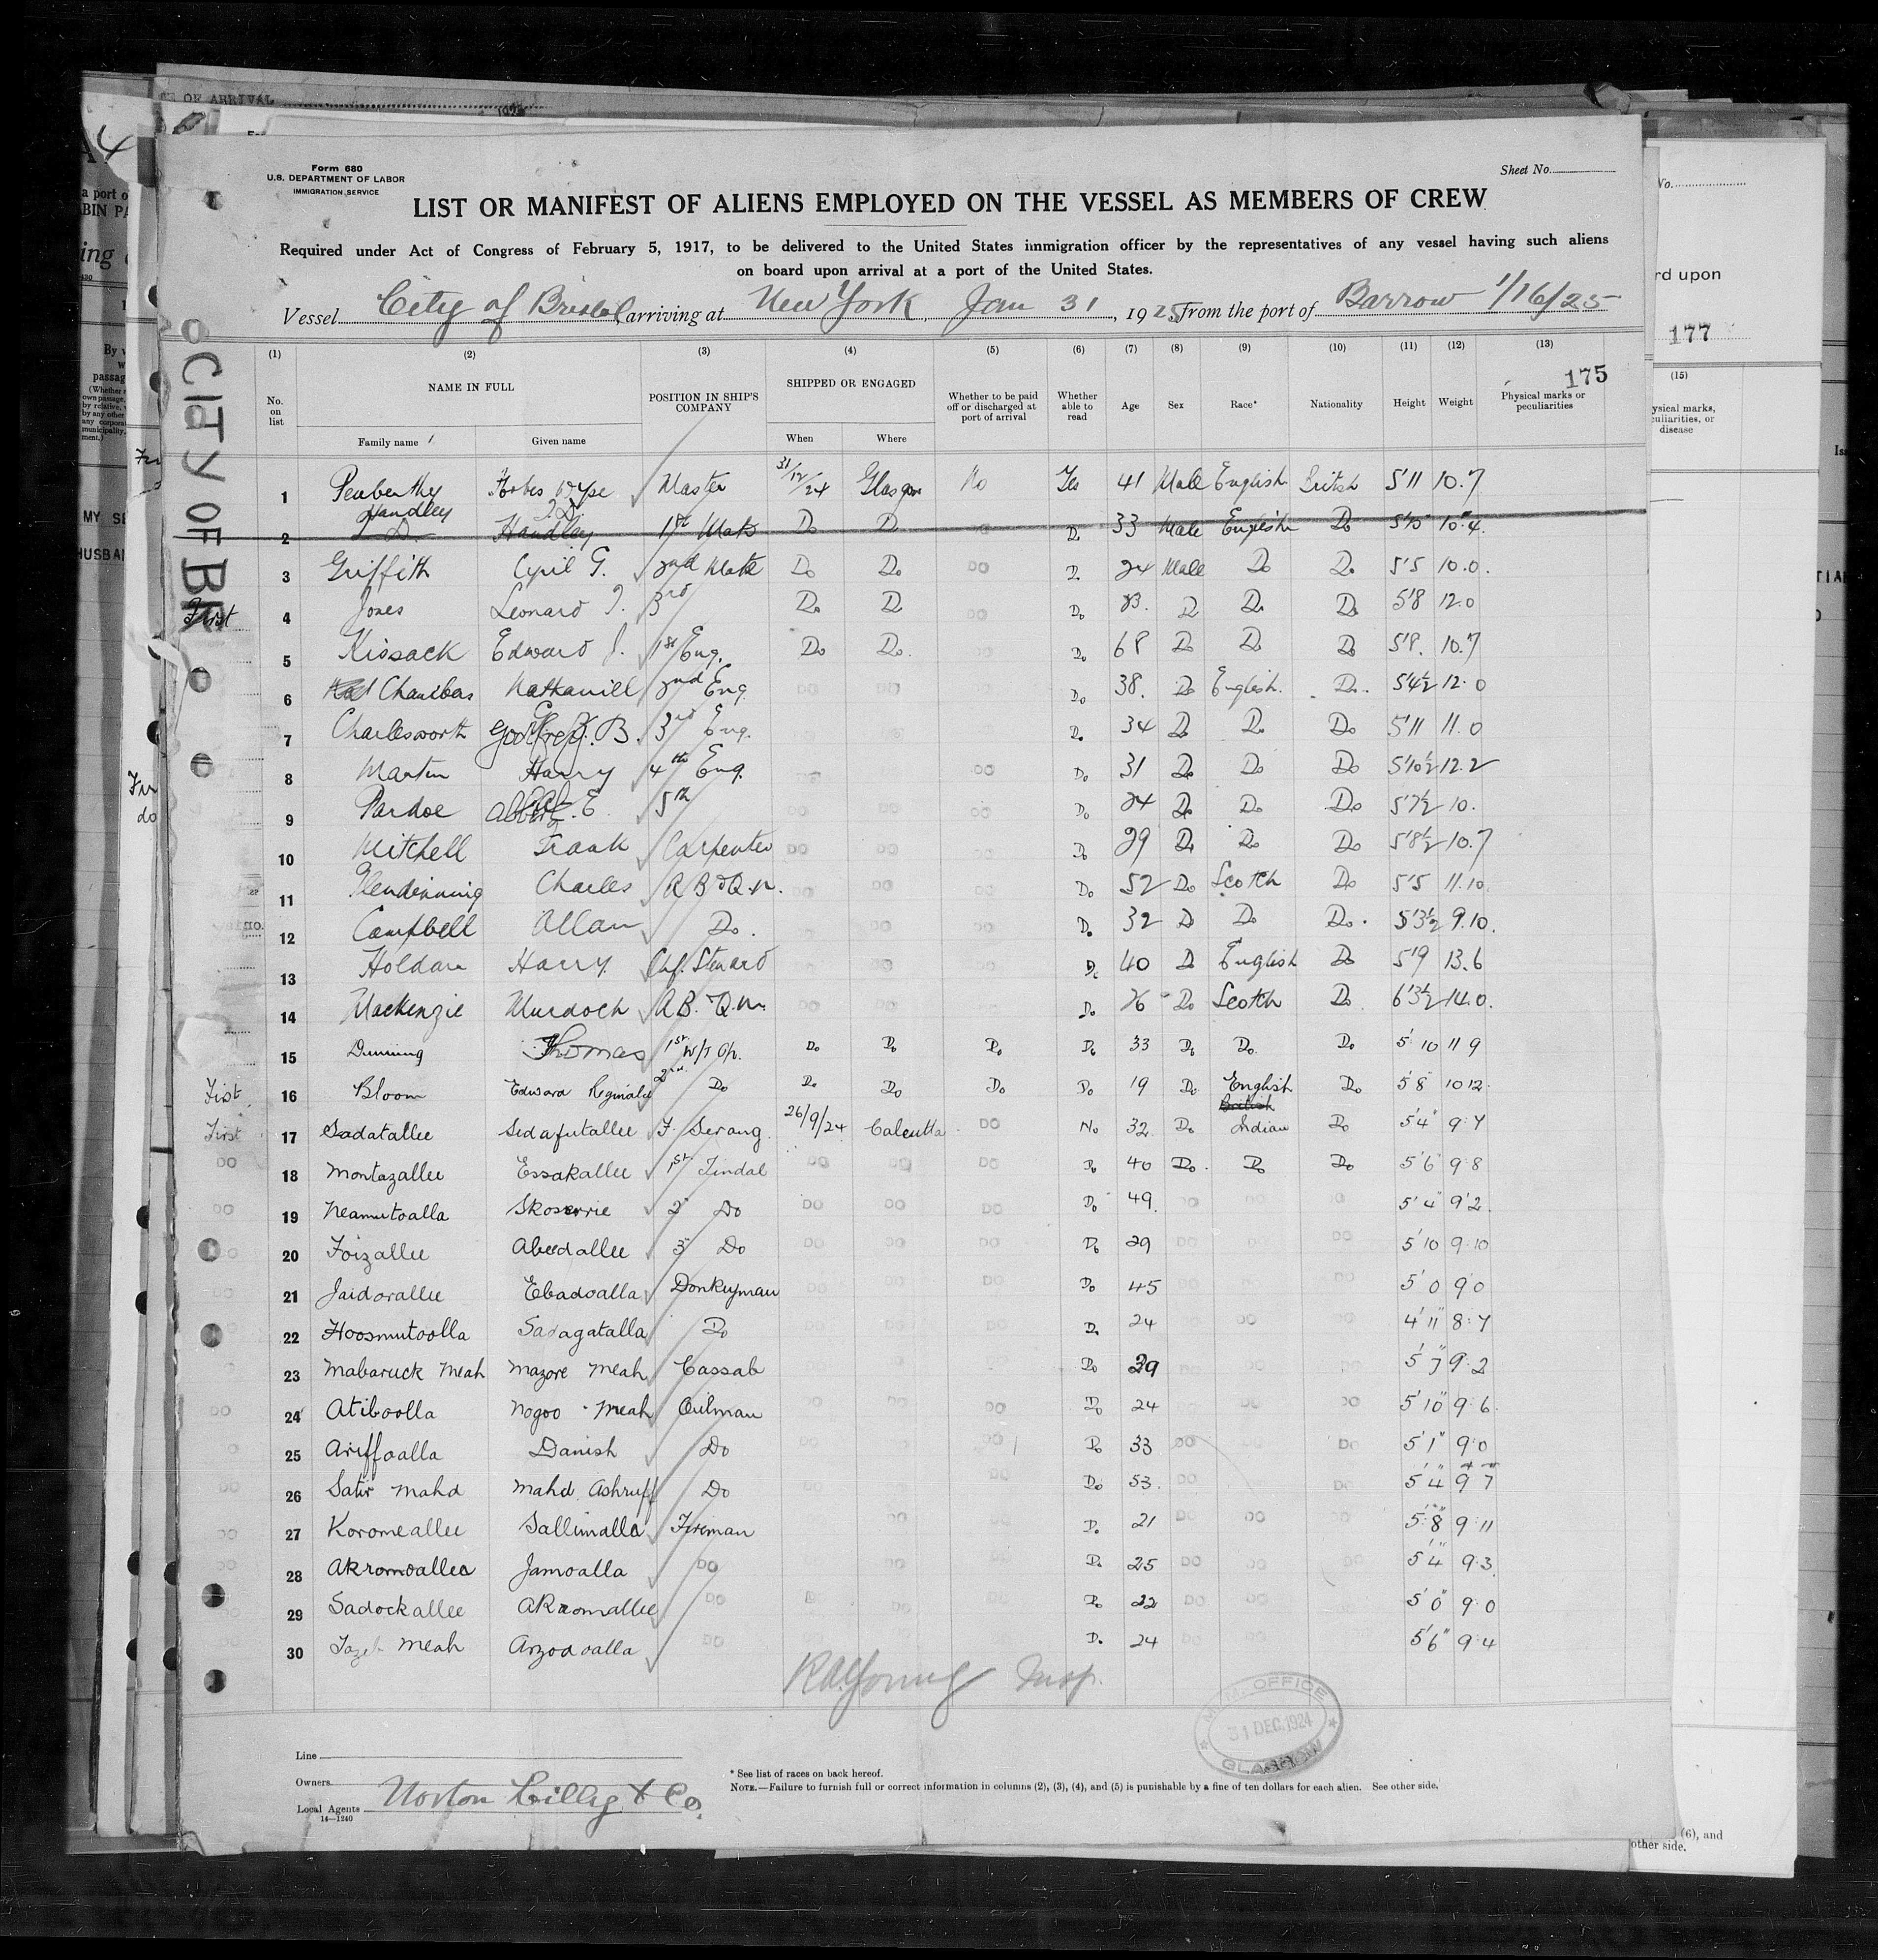 OF ARRIVAL
Form 680
U.S. DEPARTMENT OF LABOR
IMMIGRATION SERVICE
Sheet No.
LIST OR MANIFEST OF ALIENS EMPLOYED ON THE VESSEL AS MEMBERS OF CREW
Required under Act of Congress of February 5, 1917, to be delivered to the United States immigration officer by the representatives of any vessel having such aliens
on board upon arrival at a port of the United States.
Vessel City of Bristol, arriving at New York, Jan 31, 1925, from the port of Barrow 1/16/25
(1) (2) (3) (4) (5) (6) (7) (8) (9) (10) (11) (12) (13)
175
No. on list NAME IN FULL POSITION IN SHIP'S COMPANY SHIPPED OR ENGAGED Whether to be paid off or discharged at port of arrival Whether able to read Age Sex Race* Nationality Height Weight Physical marks or peculiarities
Family name Given name When Where
1 Penberthy Forbes Master 31/12/24 Glasgow No Yes 41 Male English British 5'11 10.7
Handley J. D.
2 Handley 1st Mate Do Do Do 33 Male English Do 5'10" 10.4
3 Griffith Cyril G. 2nd Mate Do Do DO Do 24 Male Do Do 5'5 10.0.
4 Jones Leonard J. 3rd Do Do DO Do 23. Do Do Do 5'8 12.0
5 Kissack Edward J. 1st Eng. Do Do. Do 68 Do Do Do 5'8. 10.7
6 Chambers Nathaniel 2nd Eng. DO DO Do 38. Do English. Do. 5'4½ 12.0
7 Charlesworth Godfrey B. 3rd Eng. Do 34 Do Do Do 5'11 11.0
8 Martin Harry 4th Eng. DO Do 31 Do Do Do 5'10½ 12.2
9 Pardoe Albert E. 5th Do 24 Do Do Do 5'7½ 10.
10 Mitchell Frank Carpenter DO DO Do 29 Do Do Do 5'8½ 10.7
11 Glendinning Charles A.B & Q.M. DO DO Do 52 Do Scotch Do 5'5 11.10
12 Campbell Allan Do. DO DO Do 32 Do Do Do. 5'3½ 9.10.
13 Holdan Harry Chf. Steward Do 40 Do English Do 5'9 13.6
14 Mackenzie Murdoch A.B. & Q.M. DO DO Do 26 Do Scotch Do 6'3½ 14.0.
15 Dunning Thomas 1st W/T Op. Do Do Do Do 33 Do Do. Do 5'10 11 9
16 Bloom Edward Reginald 2nd Do Do Do Do Do 19 Do English Do 5'8 10 12
First 17 Sadatallee Sedafutallee F. Serang 26/9/24 Calcutta DO No 32 Do Indian Do 5'4" 9.7
18 Montazallee Essakallee 1st Tindal DO DO DO Do 40 Do. Do Do 5'6" 9.8
19 Neamutoalla Skoserrie 2" Do DO DO DO Do 49. 5'4" 9.2.
20 Foizallee Abeedallee 3" Do DO DO DO Do 29 DO 5'10 9.10
21 Jaidorallee Ebadoalla Donkeyman DO Do 45 DO 5'0 9.0
22 Hoosmutoolla Sadagatalla Do Do 24 DO 4'11" 8.7
23 Mabaruck Meah Mazore Meah Cassab Do 29 5'7" 9.2
24 Atiboolla Nogoo Meah Oilman DO Do 24 DO DO 5'10" 9.6.
25 Ariffoalla Danish Do DO Do 33 DO DO 5'1" 9.0
26 Satir Mahd Mahd Ashruff Do DO Do 53. DO DO 5'4" 9 7
27 Koromeallee Sallimalla Fireman DO Do 21 DO DO 5'8" 9.11
28 Akromoallee Jamoalla DO DO Do 25 DO DO 5'4" 9.3.
29 Sadockallee Akromallee DO DO Do 22 DO DO 5'0" 9.0
30 Meah Arzodoalla DO Do 24 5'6" 9.4
Insp.
M.M. OFFICE
31 DEC. 1924
GLASGOW
Line
Owners
Local Agents Norton Lilly & Co.
14—1240
* See list of races on back hereof.
NOTE.—Failure to furnish full or correct information in columns (2), (3), (4), and (5) is punishable by a fine of ten dollars for each alien. See other side.
No.
rd upon
177
(15)
ysical marks,
culiarities, or
disease
(6), and
other side.